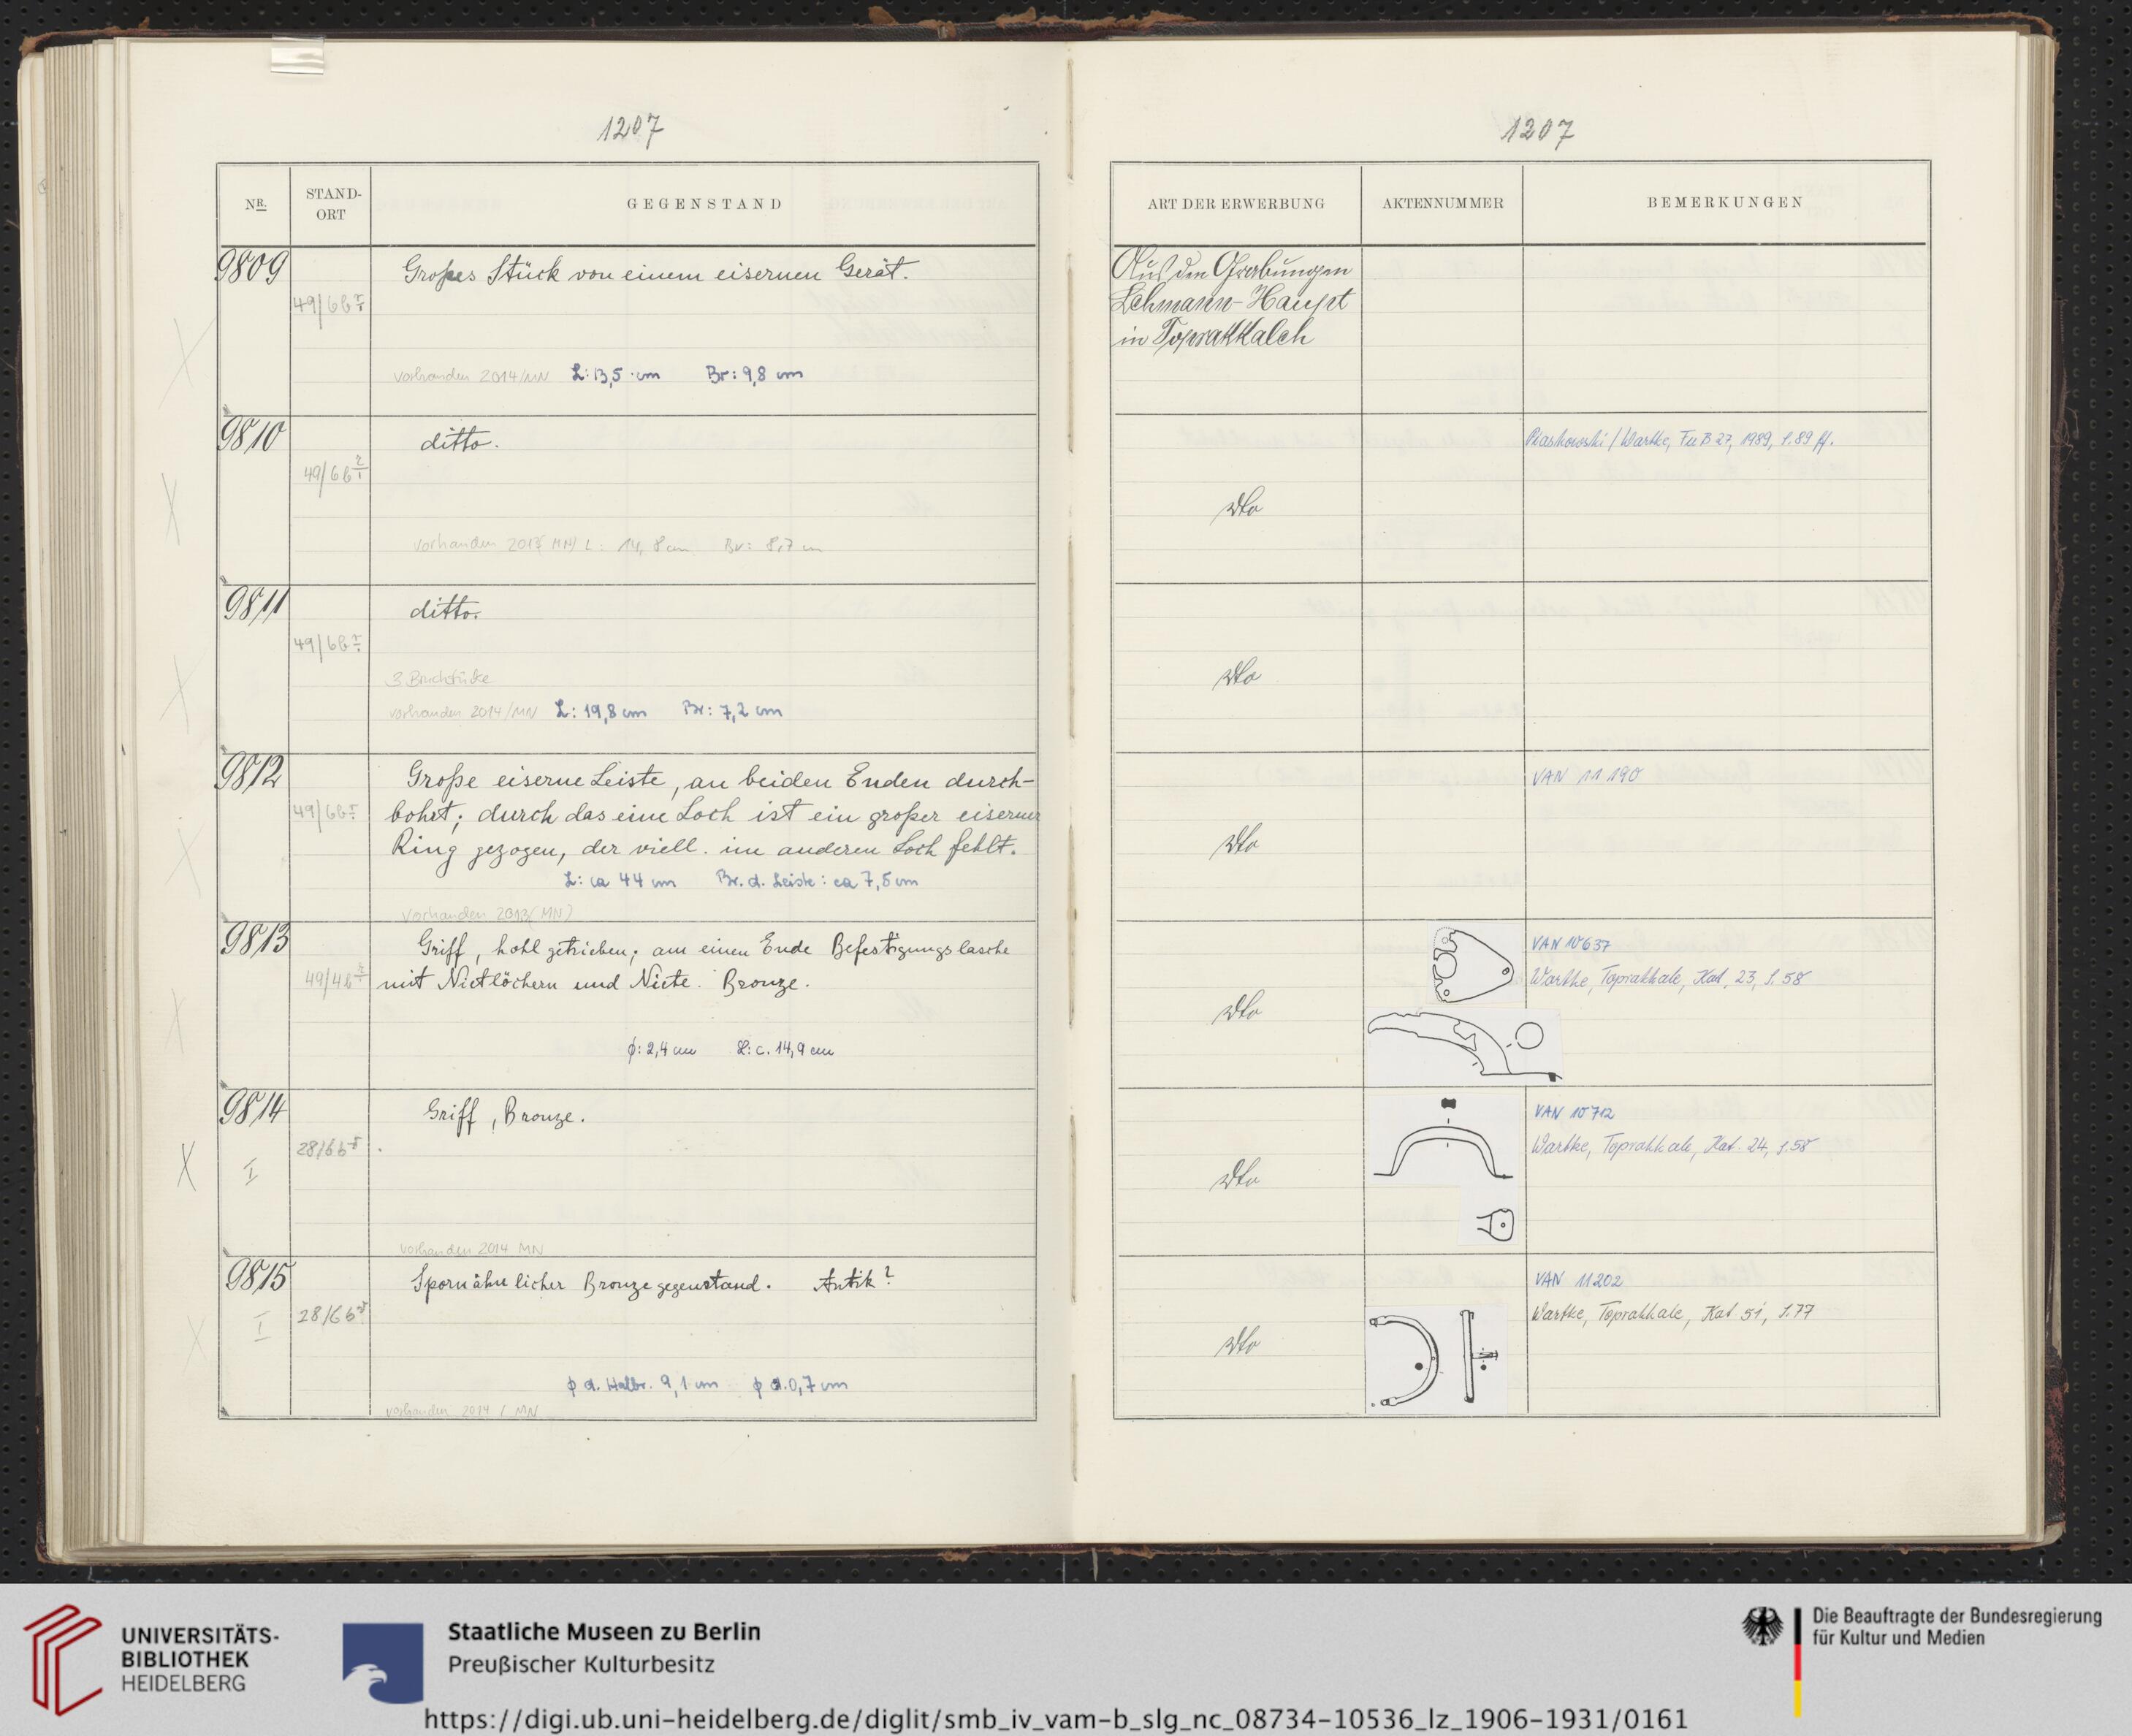 1207
NR.
STAND-
ORT
GEGENSTAND
9809
Großes Stück von einem eisernen Gerät.
49/6b
vorhanden 2014/MN L: 13,5 cm Br: 9,8 cm
9810
ditto.
49/6b 2/1
vorhanden 2013 MN) L: 14,8 cm Br: 8,7 cm
9811
ditto.
49/6b
3 Bruchstücke
vorhanden 2014/MN L: 19,8 cm Br: 7,2 cm
9812
Große eiserne Leiste, an beiden Enden durch-
49/6b
bohrt; durch das eine Loch ist ein großer eiserner
Ring gezogen, der viell. im anderen Loch fehlt.
L: ca 44 cm Br. d. Leiste: ca 7,5 cm
Vorhanden 2013 (MN)
9813
Griff, hohl getrieben; am einen Ende Befestigungslasche
49/4b
mit Nietlöchern und Niete. Bronze.
φ: 2,4 cm L: c. 14,9 cm
9814
Griff, Bronze.
28/6b
I
vorhanden 2014 MN
9815
Spornähnlicher Bronzegegenstand. Antik?
28/6b
I
φ d. Halbr. 9,1 cm φ 0,7 cm
vorhanden 2014 / MN
1207
ART DER ERWERBUNG
AKTENNUMMER
BEMERKUNGEN
Aus den Grabungen
Lehmann-Haupt
in Toprakkaleh
Piaskowski/Wartke, FuB 27, 1989, S. 89 ff.
dto
dto
VAN 11 190
dto
VAN 10637
Wartke, Toprakkale, Kat. 23, S. 58
dto
VAN 10712
Wartke, Toprakkale, Kat. 24, S. 58
dto
VAN 11202
Wartke, Toprakkale, Kat 51, S. 77
dto
UNIVERSITÄTS-
BIBLIOTHEK
HEIDELBERG
Staatliche Museen zu Berlin
Preußischer Kulturbesitz
Die Beauftragte der Bundesregierung
für Kultur und Medien
https://digi.ub.uni-heidelberg.de/diglit/smb_iv_vam-b_slg_nc_08734-10536_lz_1906-1931/0161